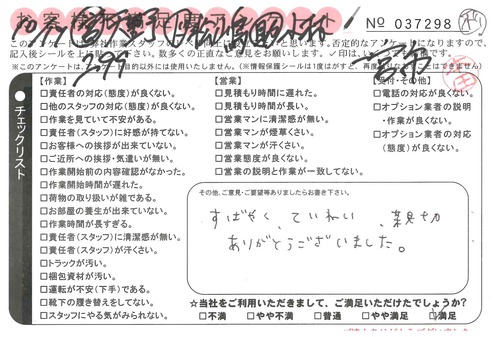 お客様満足度アンケート
No 037298
※このアンケートは、アンケート目的以外には使用いたしません。
チェックリスト
【作業】
□責任者の対応(態度)が良くない。
□他のスタッフの対応(態度)が良くない。
□作業を見ていて不安がある。
□責任者(スタッフ)に好感が持てない。
□お客様への挨拶が出来ていない。
□ご近所への挨拶・気遣いが無い。
□作業開始前の内容確認がなかった。
□作業開始時間が遅れた。
□荷物の取り扱いが雑である。
□お部屋の養生が出来ていない。
□作業時間が長すぎる。
□責任者(スタッフ)に清潔感が無い。
□責任者(スタッフ)が汗くさい。
□トラックが汚い。
□梱包資材が汚い。
□運転が不安(下手)である。
□靴下の履き替えをしてない。
□スタッフにやる気がみられない。
【営業】
□見積もり時間に遅れた。
□見積もり時間が長い。
□営業マンに清潔感が無い。
□営業マンが煙草くさい。
□営業マンが汗くさい。
□営業態度が良くない。
□営業の説明と作業が一致してない。
【受付・その他】
□電話の対応が良くない。
□オプション業者の説明
・作業が良くない。
□オプション業者の対応
(態度)が良くない。
その他、ご意見・ご要望等ありましたらお書き下さい。
すばやく、ていねい、親切
ありがとうございました。
☆当社をご利用いただきまして、ご満足いただけたでしょうか?
□不満 □やや不満 □普通 □やや満足 □満足